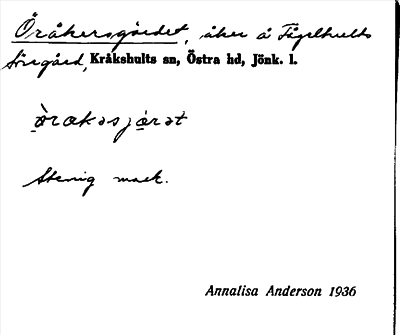 Öråkersgärdet, åker å Fågelhults
Sörgård, Kråkshults sn, Östra hd, Jönk. l.
òrakəsjárət
Stenig mark.
Annalisa Anderson 1936